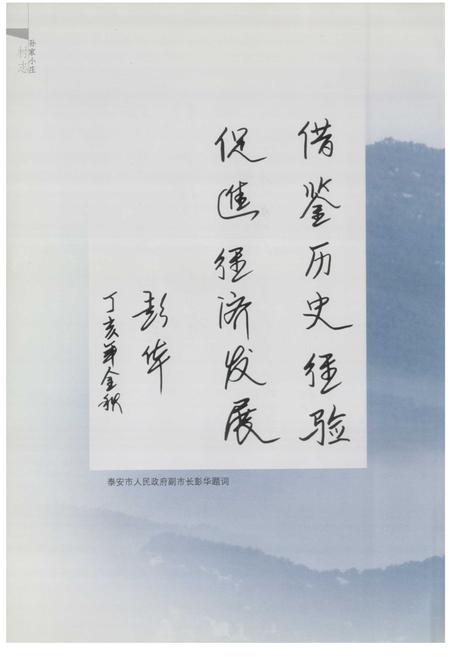 孙家小庄
村志
借鉴历史经验
促进经济发展
彭华
丁亥年金秋
泰安市人民政府副市长彭华题词